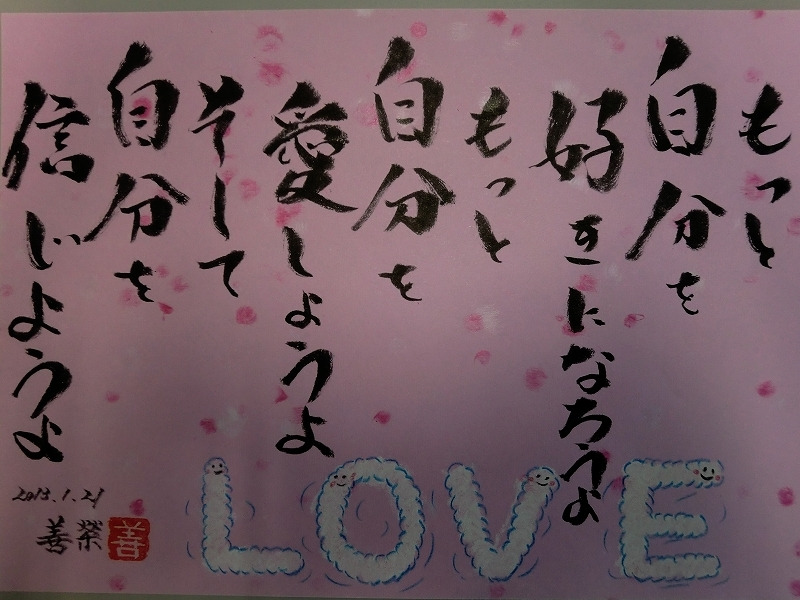 もっと
自分を
好きになろうよ
もっと
自分を
愛しようよ
そして
自分を
信じようよ
LOVE
2015.1.21
善榮
善